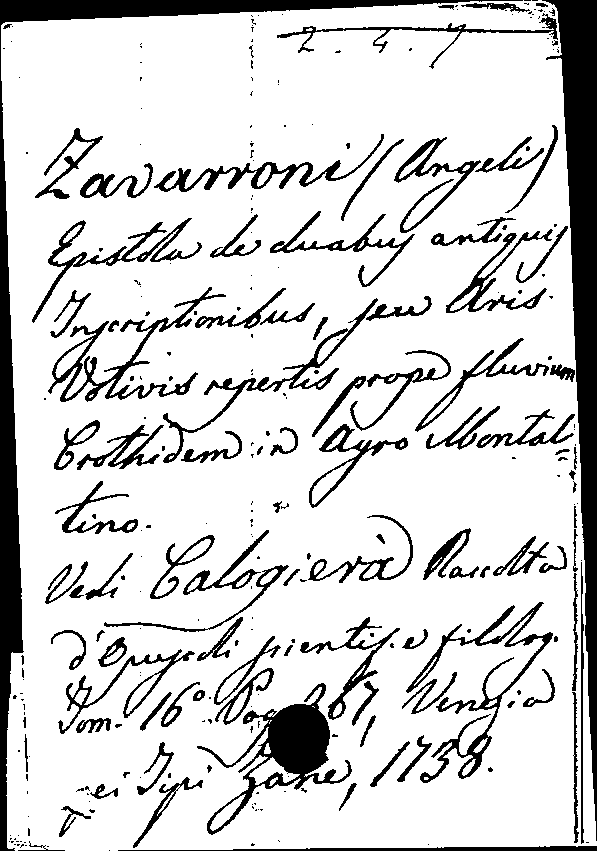 2. 4. 7
Zavarroni (Angeli)
Epistola de duabus antiquis
Inscriptionibus, seu Aris
Votivis repertis prope fluvium
Crothidem in Agro Montal=
tino.
Vedi Calogierà Raccolta
d'Opuscoli scientif. e filolog.
Tom. 16º Pag. 267, Venezia
pei Tipi Zane, 1738.